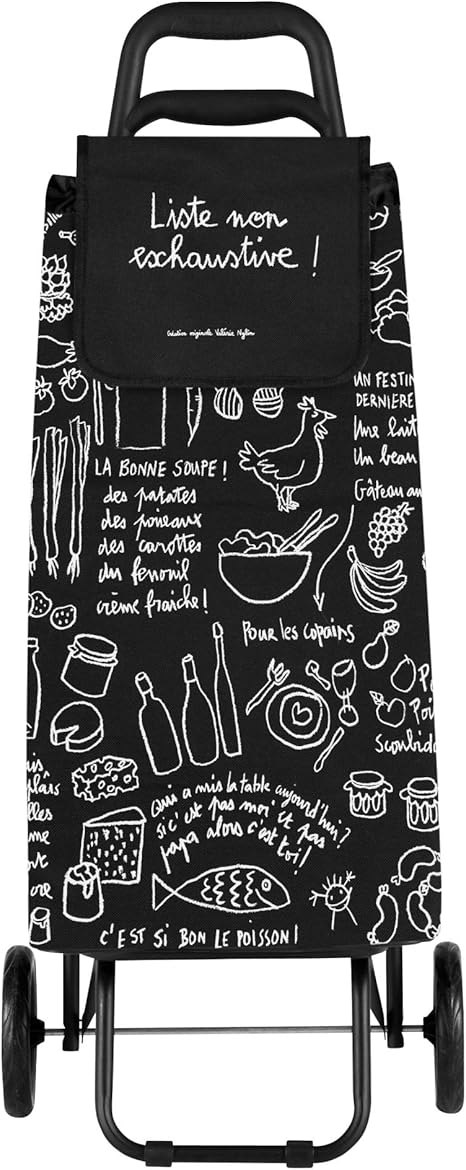 Liste non
exhaustive !
Création originale Valérie Nylin
UN FESTIN
DERNIERE
Une lait
Un beau
Gâteau au
LA BONNE SOUPE !
des patates
des poireaux
des carottes
du fenouil
crème fraîche !
Pour les copains
Po
Poi
Scoubido
Qui a mis la table aujourd'hui?
si c'est pas moi et pas
papa alors c'est toi!
C'EST SI BON LE POISSON!